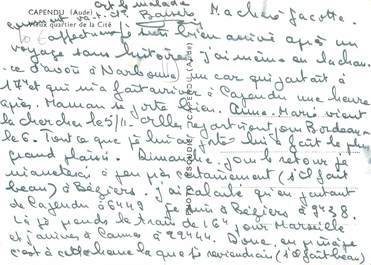 CAPENDU (Aude)
Vieux quartier de la Cité
est malade
comment va-t-il Ma chère Jacotte.
10 € affectant je suis bien arrivée après un
voyage sans histoires j'ai même eu la chan-
ce d'avoir à Narbonne un car qui partait à
17h et qui m'a fait arriver à Capendu une heure
après. Maman se porte bien. Anne-Marie vient
la chercher le 5/11. elles repartiront pour Bordeaux
le 6. Tout ce que je lui ai porté lui a fait le plus
grand plaisir. Dimanche pour le retour je
m'arrêterai à peu près certainement (s'il fait
beau) à Béziers. j'ai calculé qu'en partant
de Capendu à 8h48 je suis à Béziers à 9h38.
Là je prends le train de 16h pour Marseille
et j'arrive à Cannes à 22h44. Donc, en principe
c'est à cette heure là que je reviendrai (s'il fait beau)
PHOTO ESCUDIÉ, CAPENDU (Aude)